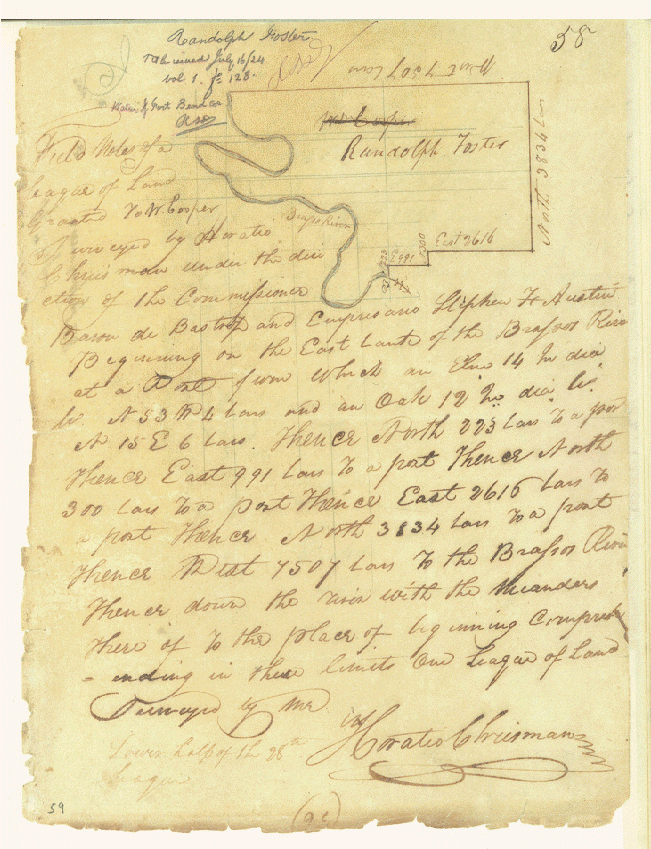 Randolph Foster
58
Obtained July 16/24
vol 1. p. 128.
West 7507 Lavas
Wm Cooper
Randolph Foster
North 3834 L
Brassos River
East 2616
300
991
223
Field Notes of a
League of Land
Granted To W. Cooper
Surveyed by Horatio
Chrisman under the dire
ction of the Commissioner
Baron de Bastrop and Empresario Stephen F. Austin
Beginning on the East bank of the Brassos River
at a Post from Which an Elm 14 In dia
br. N 53 W 4 Lavas and an Oak 12 In dia br.
N 15 E 6 Lavas. Thence North 223 Lavas To a post
Thence East 991 Lavas To a post Thence North
300 Lavas To a post Thence East 2616 Lavas to
a post Thence North 3834 Lavas To a post
Thence West 7507 Lavas To the Brassos River
Thence down the river with the meanders
there of To the place of beginning Compreh
- ending in these limits One League of Land
Surveyed by Me
Horatio Chrisman
Lower half of the 28th
league
59